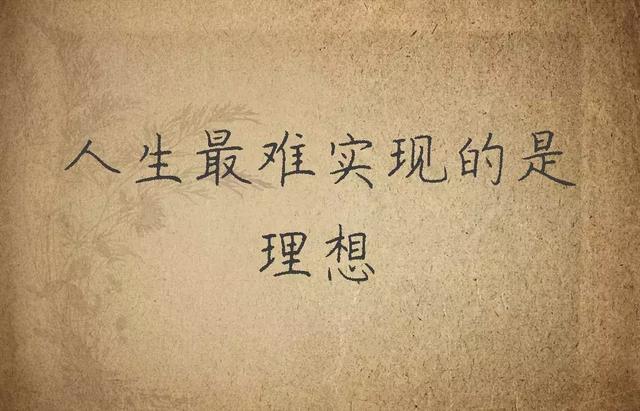 人生最难实现的是
理想